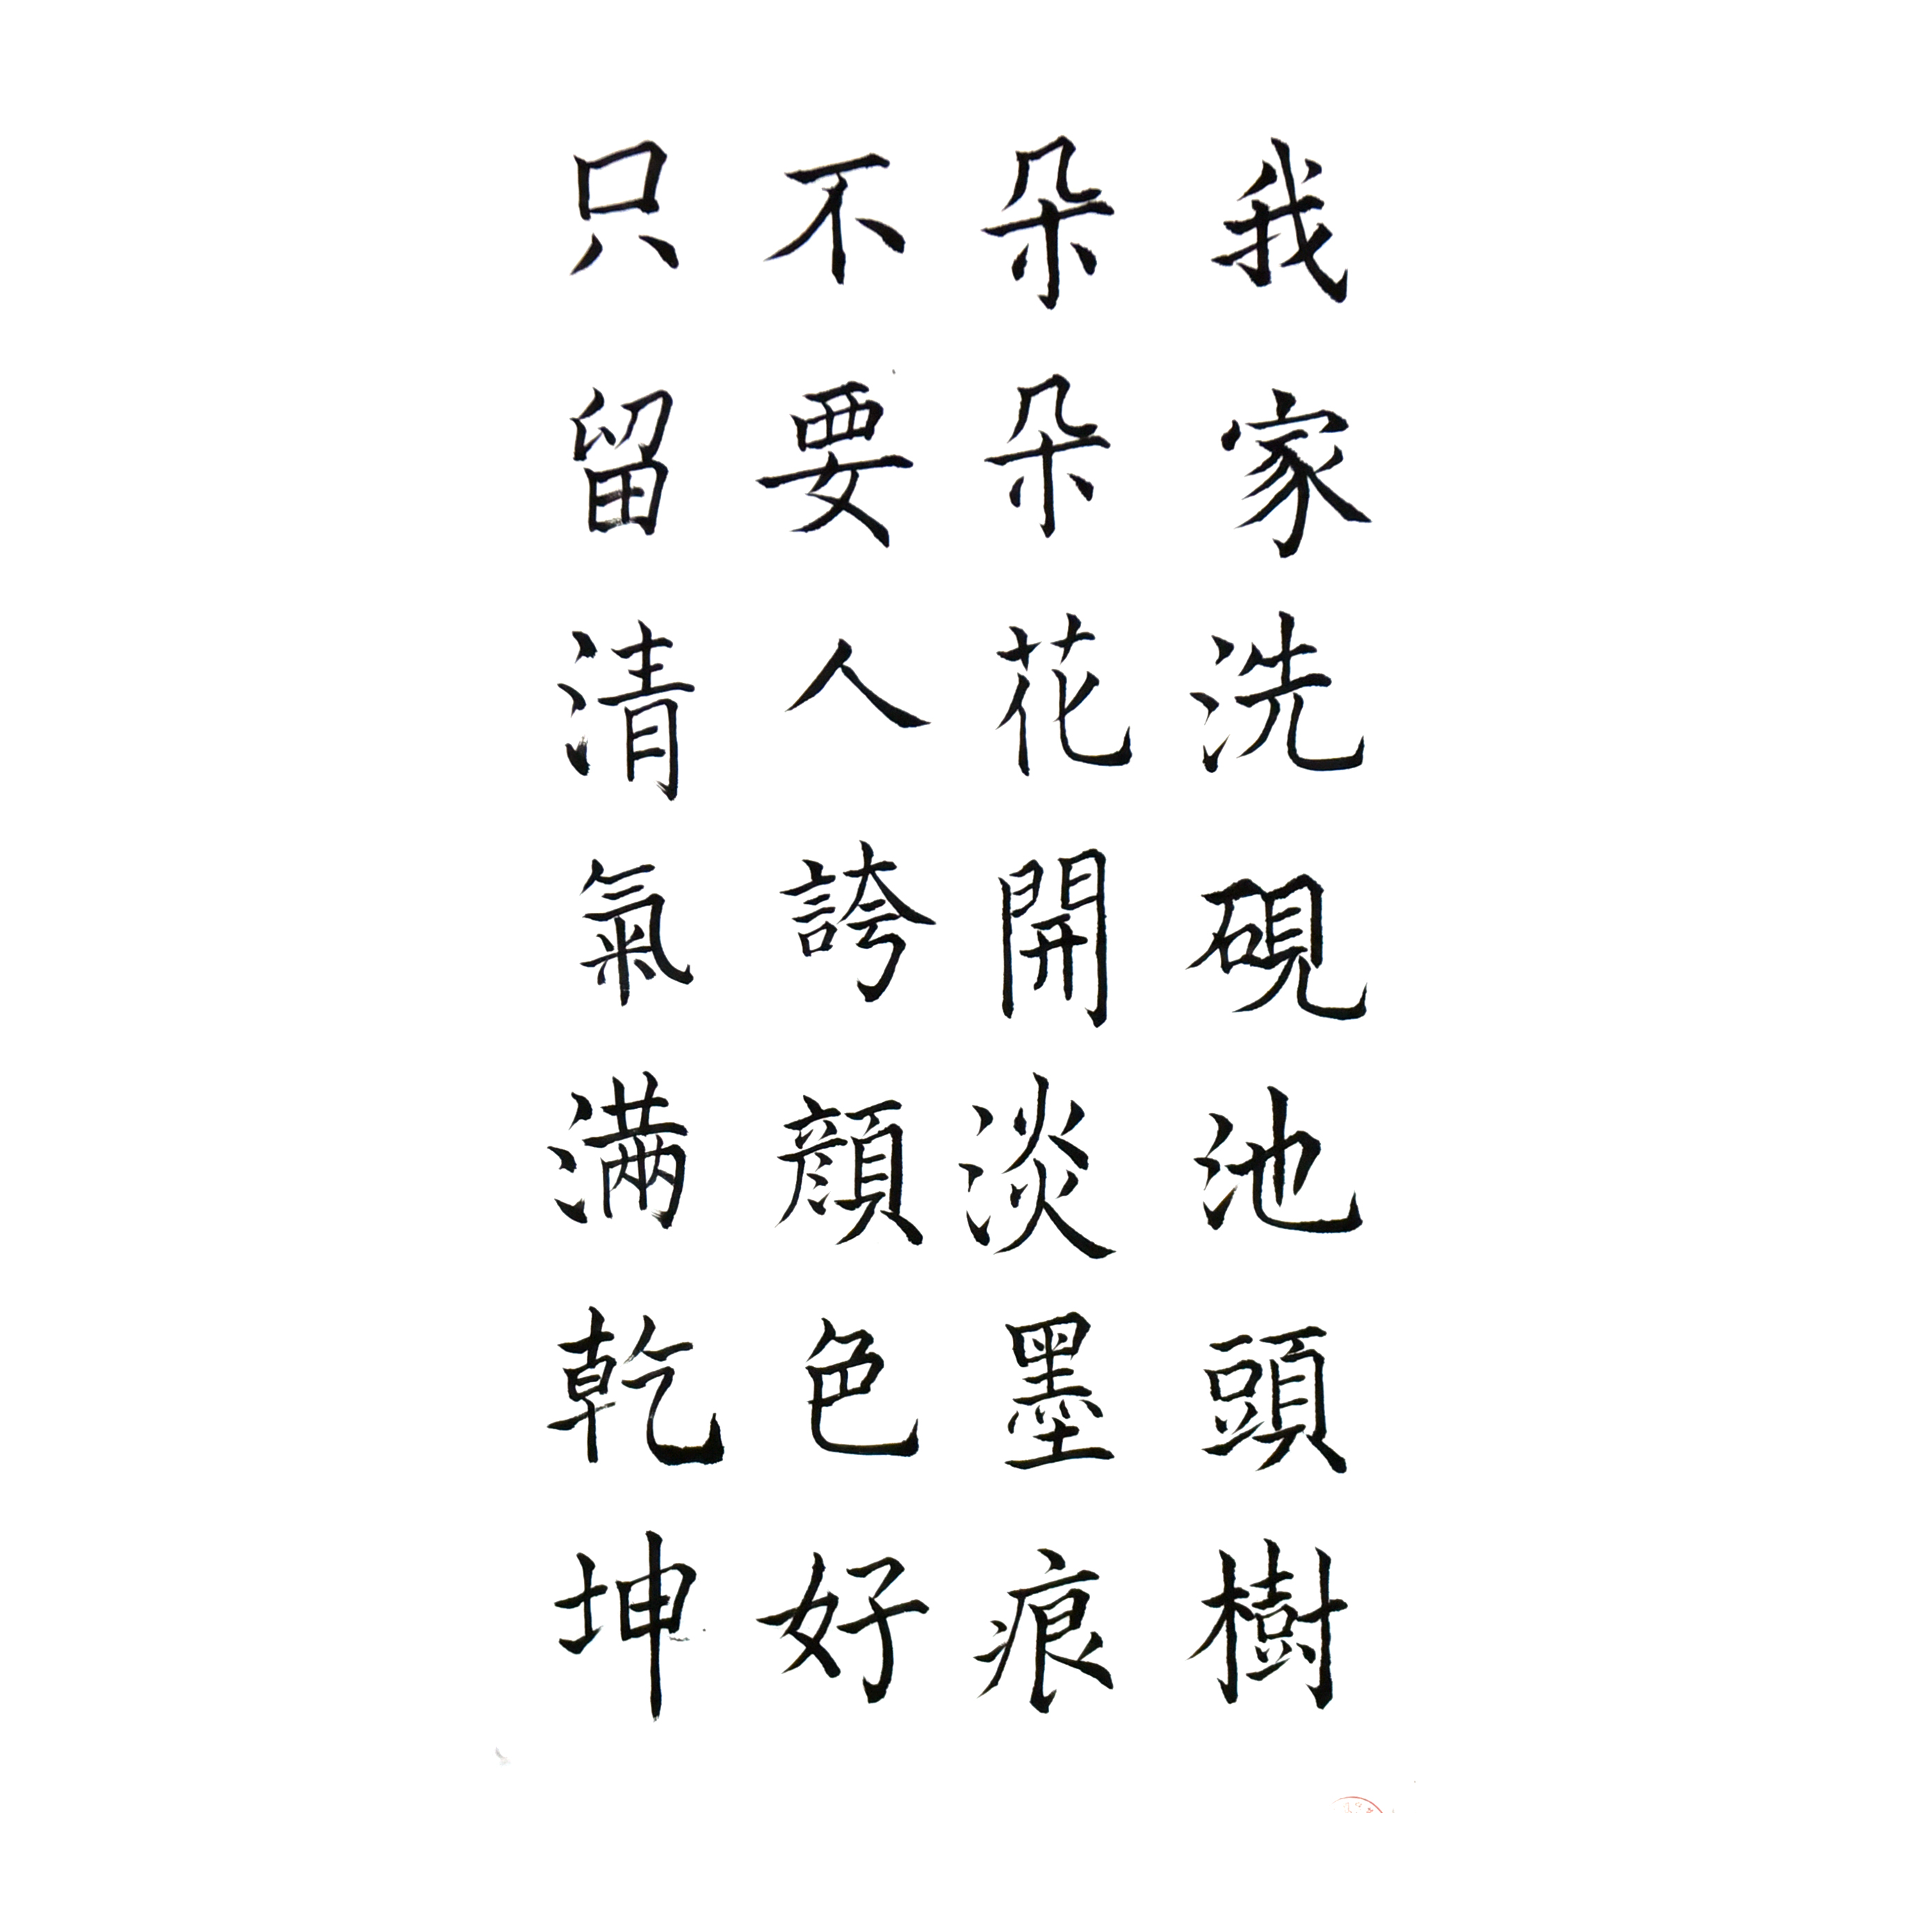 我家洗硯池頭樹
朵朵花開淡墨痕
不要人誇顔色好
只留清氣滿乾坤